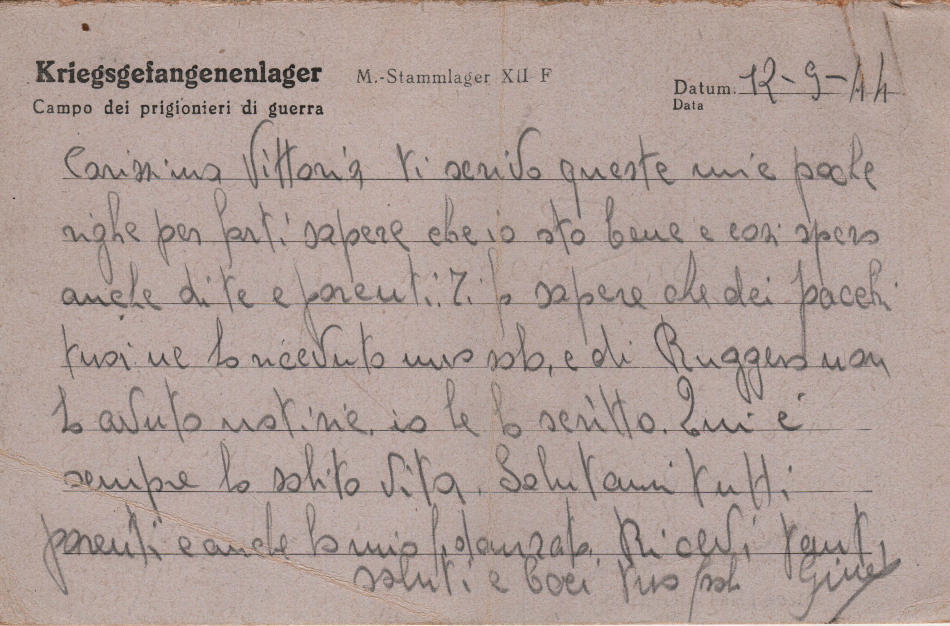 Kriegsgefangenenlager M.-Stammlager XII F
Datum: 12-9-44
Campo dei prigionieri di guerra
Data
Carissima Vittoria ti scrivo queste mie poche
righe per farti sapere che io sto bene e cosi spero
anche di te e parenti. Ti fo sapere che dei pacchi
tuoi ne ho ricevuto uno solo, e di Ruggero non
ho avuto notizie. io le ho scritto. Qui è
sempre la solita vita. Salutami tutti
parenti e anche la mia fidanzata. Ricevi tanti
saluti e baci tuo